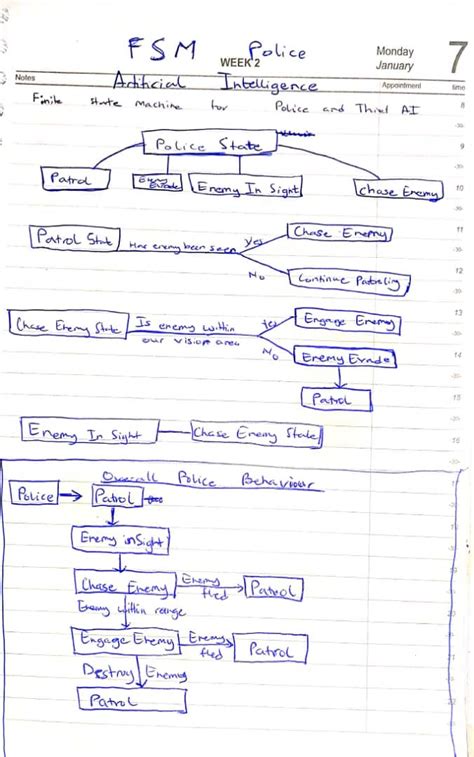 FSM Police
WEEK 2
Monday
January
7
Notes
Artificial Intelligence
Appointment
time
Finite state machine for Police and Third AI
8
Police State
9
Patrol
Enemy In Sight
Chase Enemy
10
11
Patrol State
Has enemy been seen
Yes
Chase Enemy
No
Continue Patroling
12
13
Chase Enemy State
Is enemy within
our vision area
Yes
Engage Enemy
No
Enemy Evade
14
Patrol
15
Enemy In Sight
Chase Enemy State
16
Overall Police Behaviour
Police
Patrol
Enemy inSight
Chase Enemy
Enemy
fled
Patrol
Enemy within range
Engage Enemy
Enemy
fled
Patrol
Destroy Enemy
Patrol